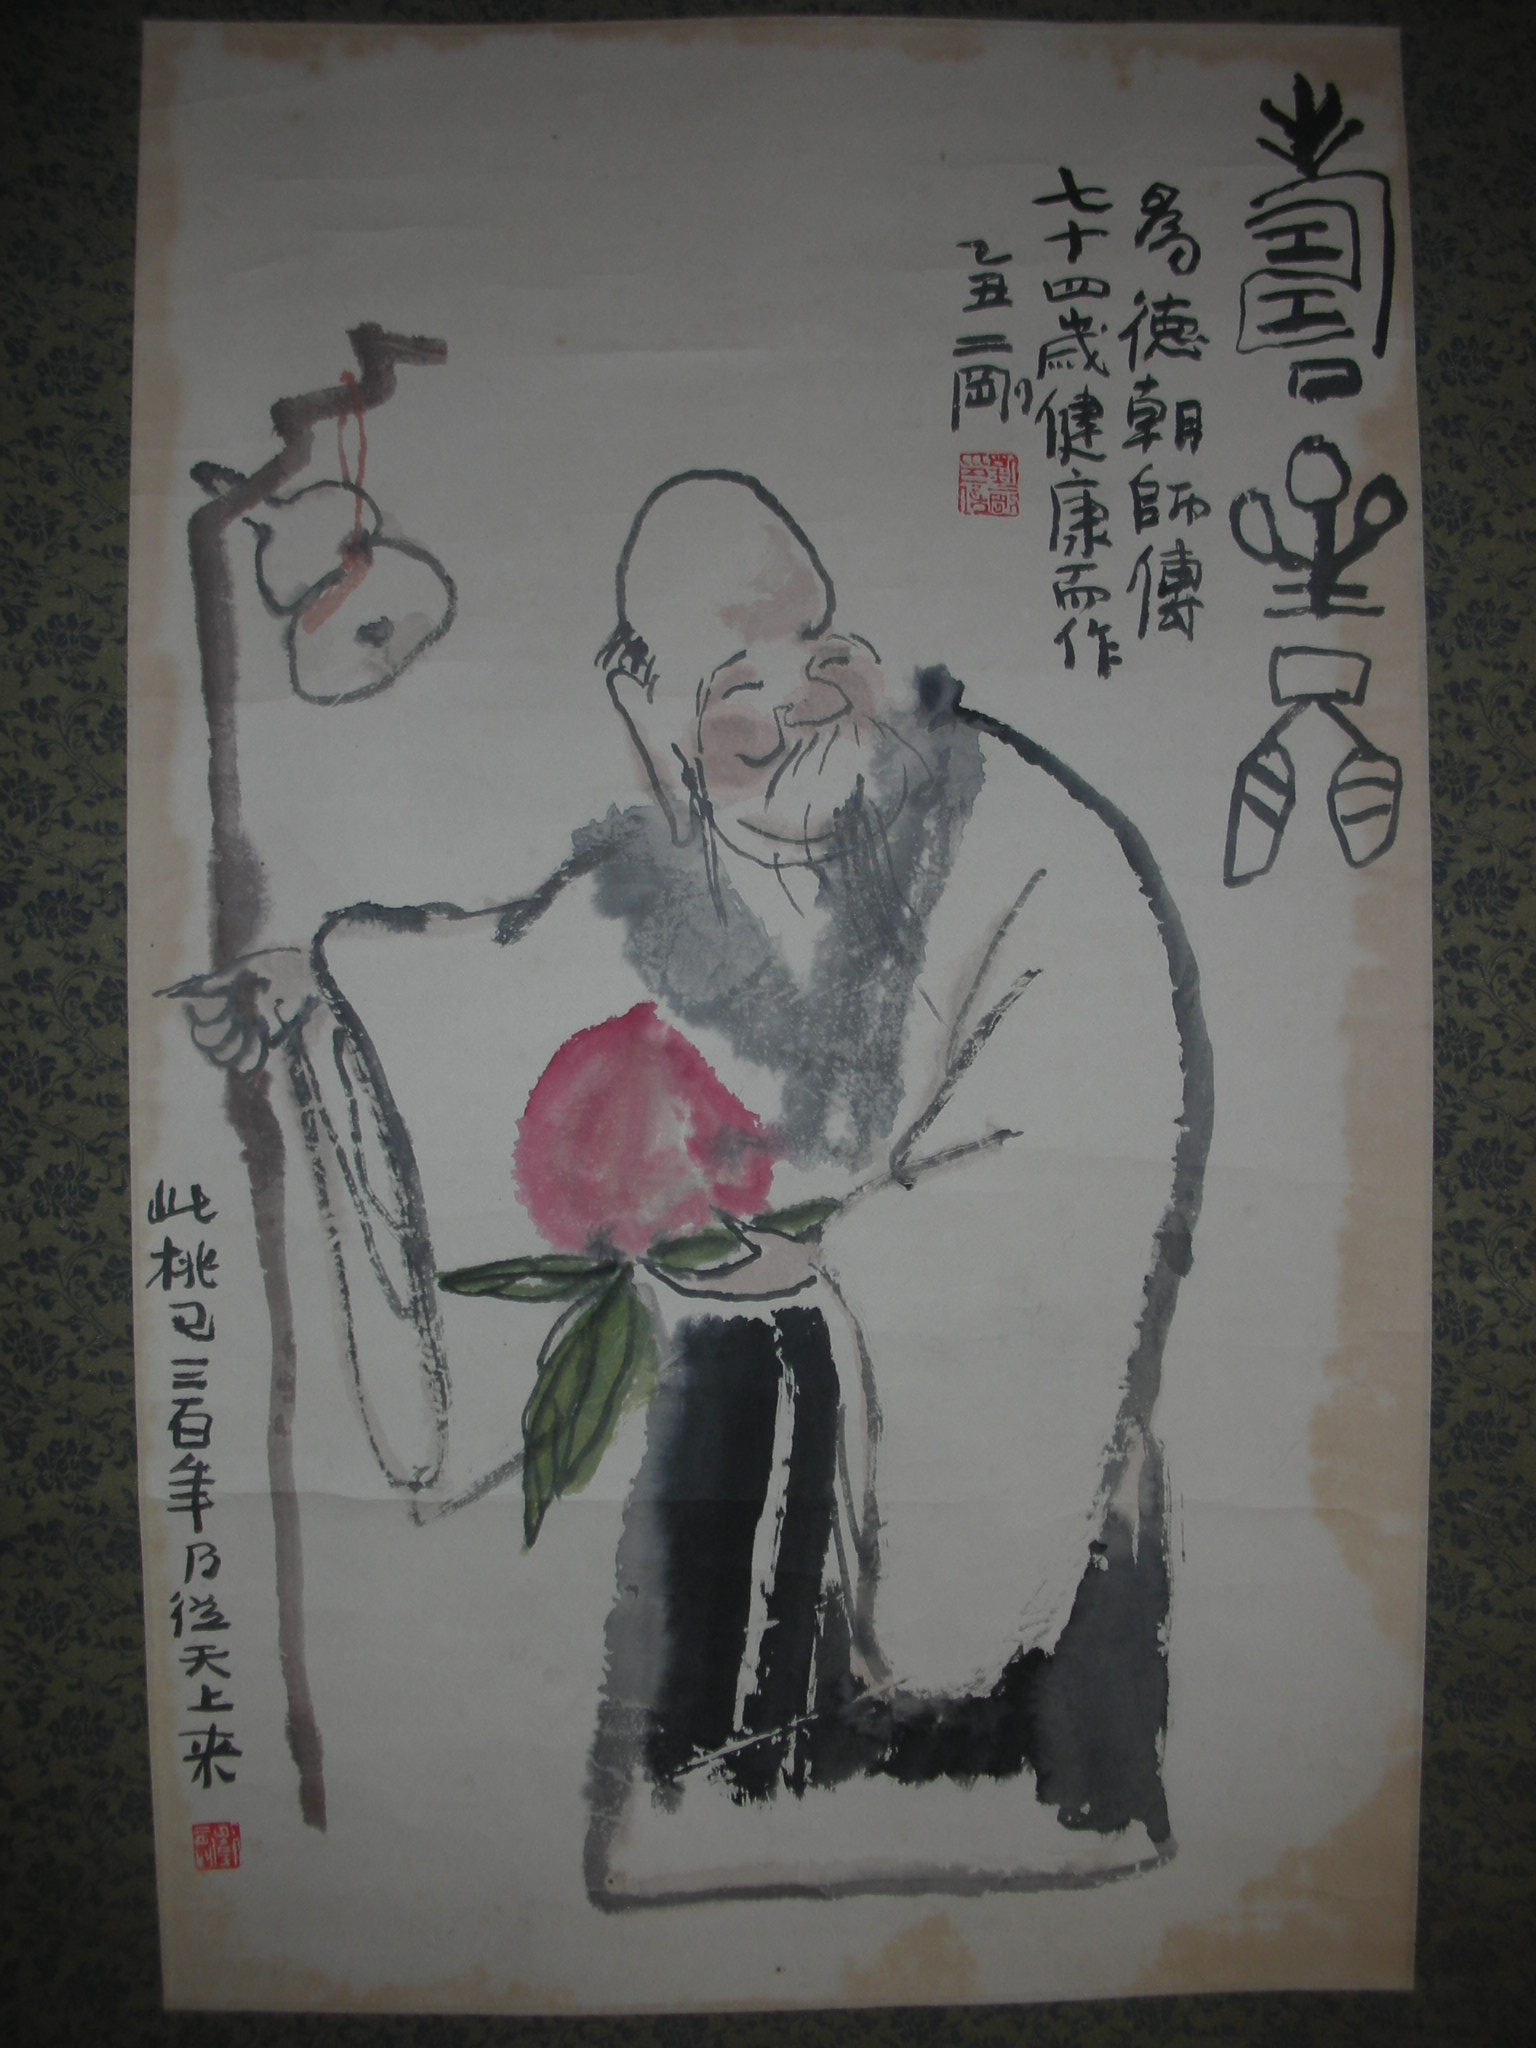 壽星
為德朝師傅
七十四歲健康而作
乙丑二剛
劉二剛
此桃已三百年乃從天上来